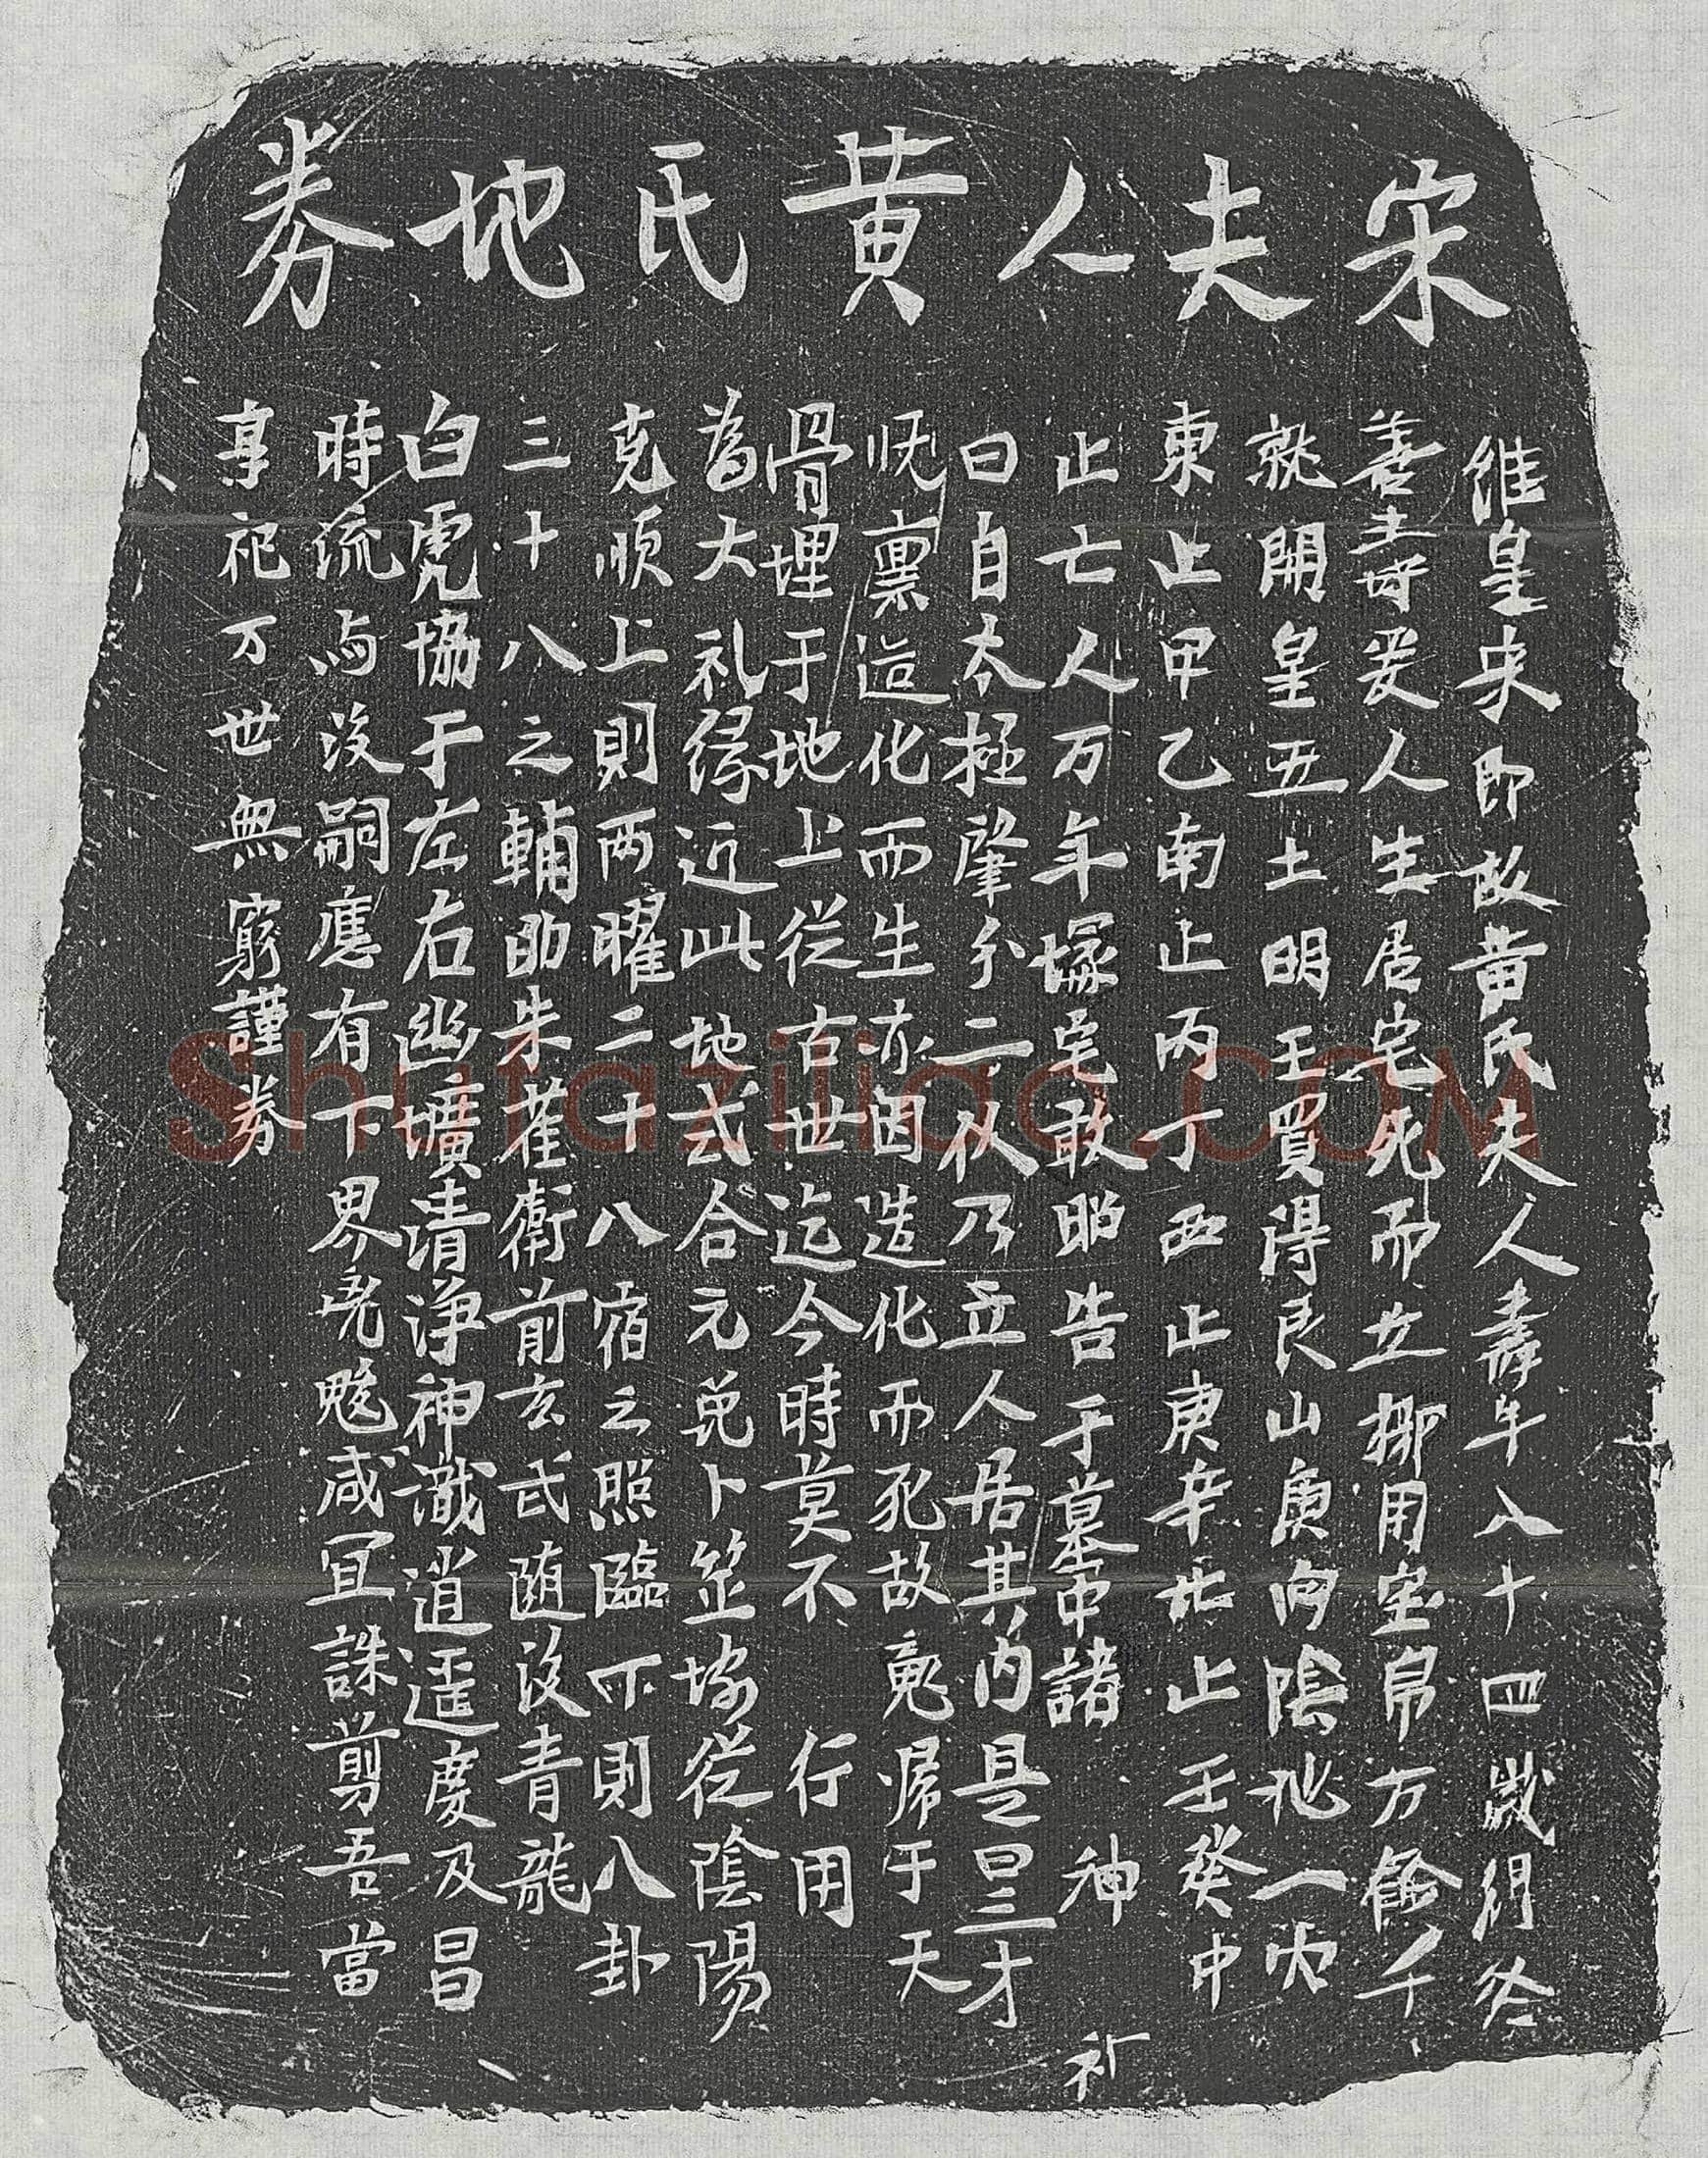 宋夫人黄氏地券
維皇宋即故黄氏夫人壽年八十四歲用終
善壽爰人生居宅死而立槨用宝帛万餘千
就開皇五土明王買得艮山庚向陰地一穴
東止甲乙南止丙丁西止庚辛北止壬癸中
止亡人万年塚宅敢昭告于墓中諸神
曰自太極肇分二仪乃立人居其内是曰三才
既稟造化而生亦因造化而死故䰟归于天
骨埋于地上従古世迄今時莫不行用
為大礼缘近此地式合元龟卜筮塚従陰陽
克順上則两曜二十八宿之照臨下則八卦
三十八之輔助朱雀衛前玄武随没青龍
白虎協于左右幽壙清净神識逍遥度及昌
時流与没嗣應有下界鬼魅咸宜誅剪吾當
享祀万世無窮謹券
Shufaziliao.COM